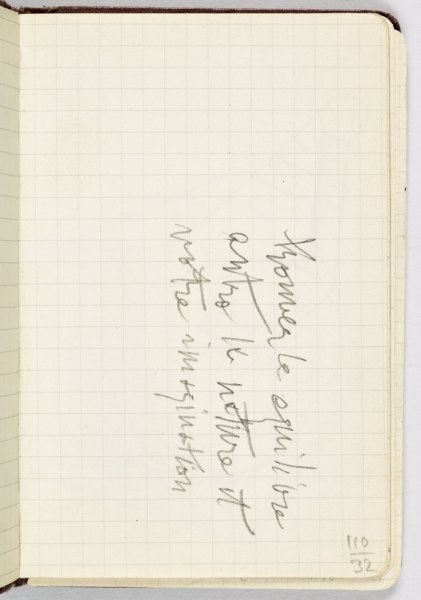 trouver le equilibre
entre le nature et
votre imagination
110
32